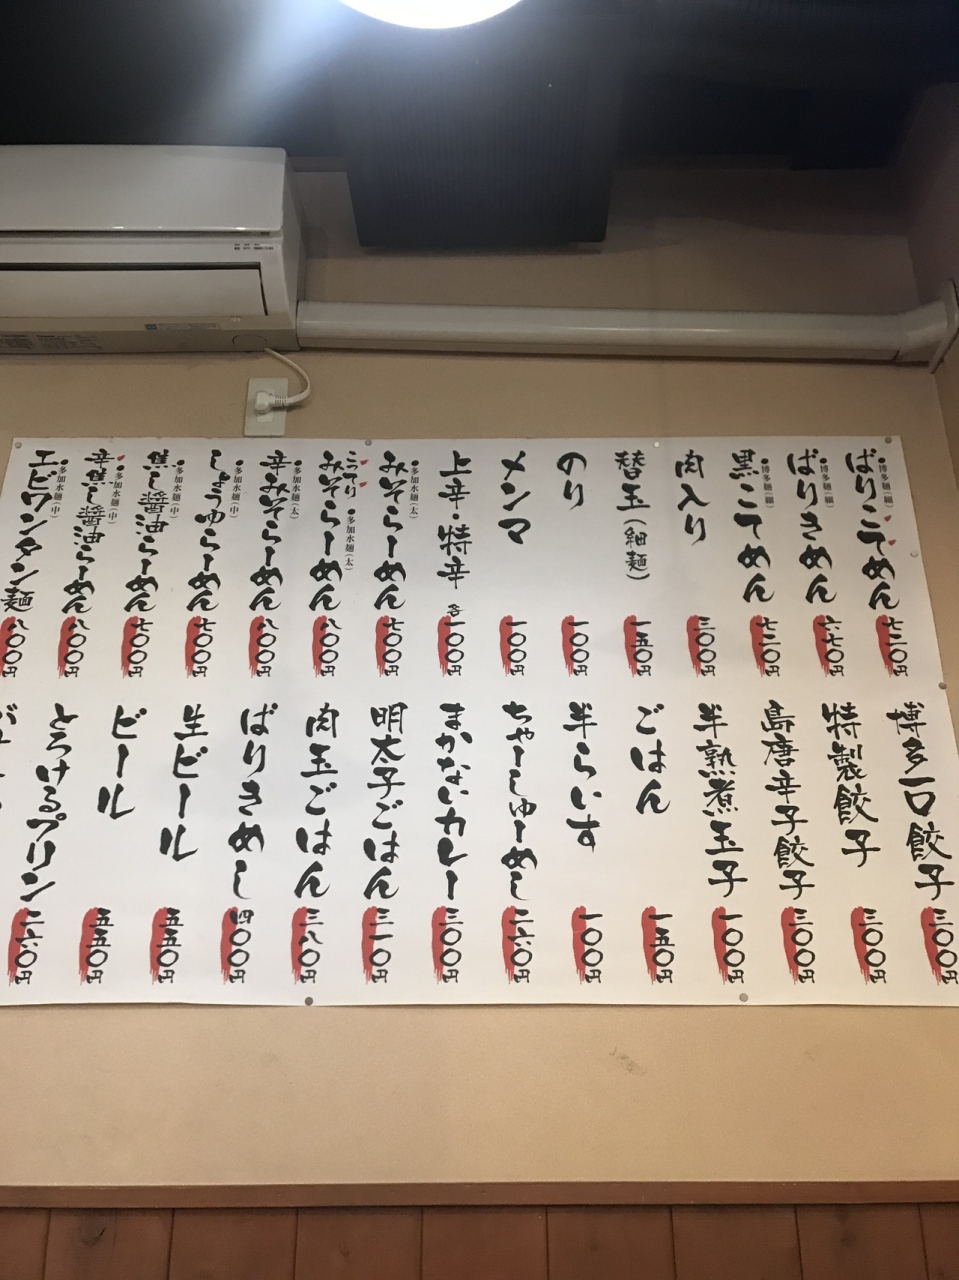 ばりこてめん ●博多麺(細) 七二〇円
ばりきめん ●博多麺(細) 六七〇円
黒こてめん ●博多麺(細) 七二〇円
肉入り 三〇〇円
替玉(細麺) 一五〇円
のり 一〇〇円
メンマ 一〇〇円
上辛・特辛 各一〇〇円
みそらーめん ●多加水麺(太) 七〇〇円
こってりみそらーめん ●多加水麺(太) 八〇〇円
辛みそらーめん ●多加水麺(太) 八〇〇円
しょうゆらーめん ●多加水麺(中) 七〇〇円
焦し醬油らーめん ●多加水麺(中) 七〇〇円
辛焦し醬油らーめん ●多加水麺(中) 八〇〇円
エビワンタン麺 ●多加水麺(中) 八〇〇円
博多一口餃子 三〇〇円
特製餃子 三〇〇円
島唐辛子餃子 三〇〇円
半熟煮玉子 一〇〇円
ごはん 一五〇円
半らいす 一〇〇円
ちゃーしゅーめし 二六〇円
まかないカレー 三〇〇円
明太子ごはん 三一〇円
肉玉ごはん 三八〇円
ばりきめし 四〇〇円
生ビール 五五〇円
ビール 五五〇円
とろけるプリン 二六〇円